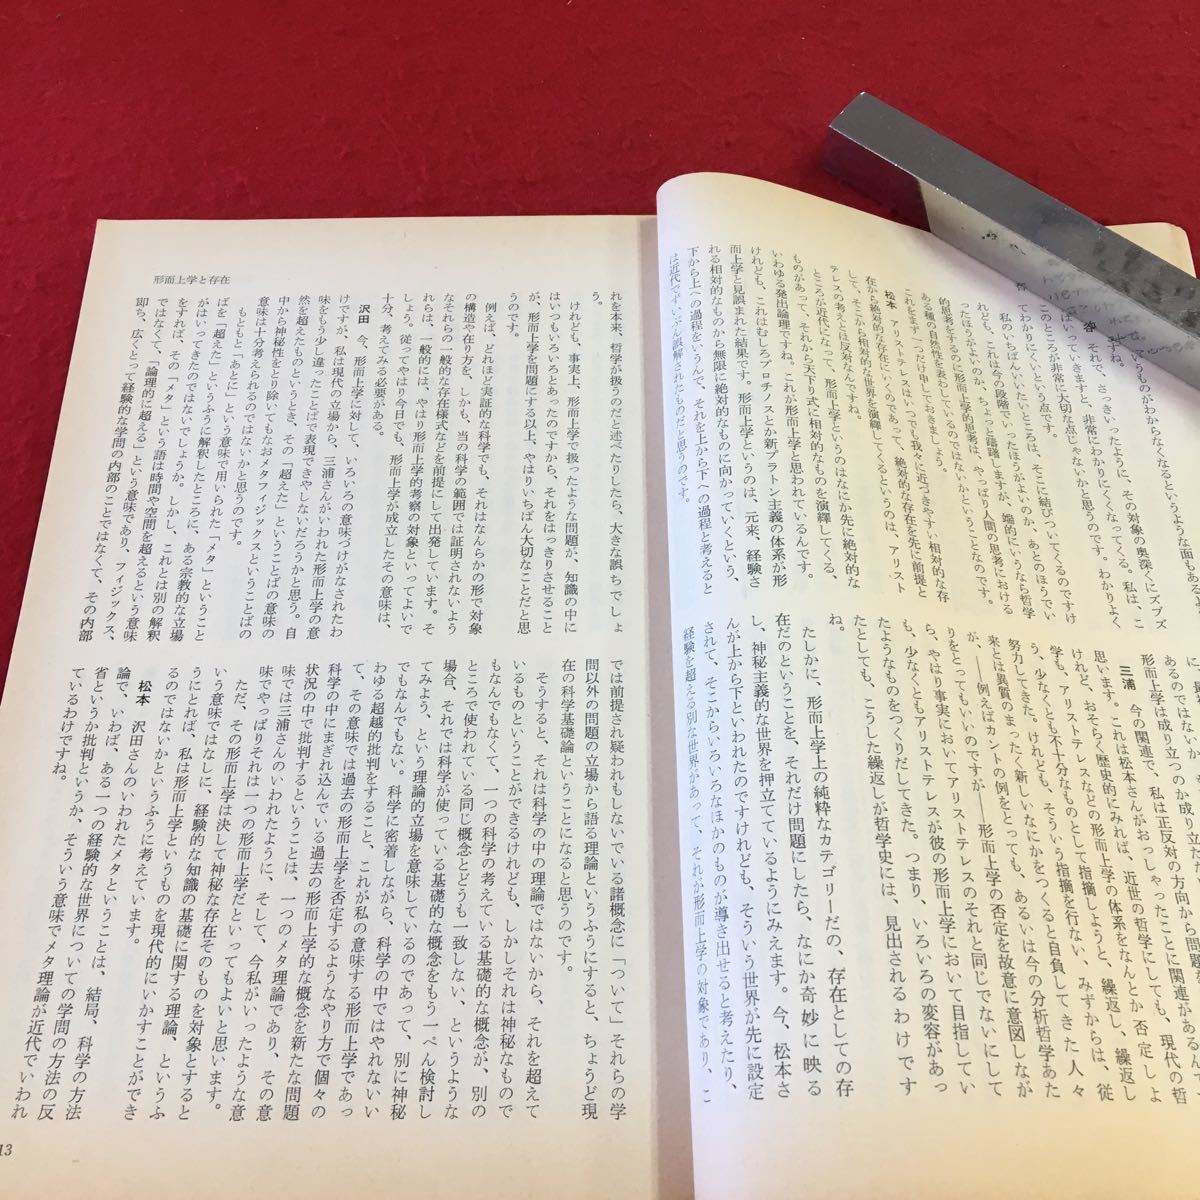 いうものがわからなくなるというような面もある
すね。
それで、さっきいったように、その対象の奥深くにズブズ
はいっていきますと、非常にわかりにくくなってくる。私は、こ
このところが非常に大切な点じゃないかと思うのです。わかりよく
てわかりにくいという点です。
私のいちばんいいたいところは、そこに結びついてくるのですけ
れども、これは今の段階でいったほうがよいのか、あとのほうでい
ったほうがよいのか、ちょっと躊躇しますが、端的にいうなら哲学
的思考をするのに形而上学的思考は、やっぱり人間の思考における
ある種の自然性を表わしているのではないかということなのです。
これをまず一つだけ申しておきましょう。
松本 アリストテレスはいつでも我々に近づきやすい相対的な存
在から絶対的な存在にいくのであって、絶対的な存在を先に前提と
して、そこから相対的な世界を演繹してくるというのは、アリスト
テレスの考えとは反対なんですね。
ところが近代になって、形而上学というのはなにか先に絶対的な
ものがあって、それから天下り式に相対的なものを演繹してくる、
いわゆる発出論理ですね。これが形而上学と思われているんです。
けれども、これはむしろプロチノスとか新プラトン主義の体系が形
而上学と見誤まれた結果です。形而上学というのは、元来、経験さ
れる相対的なものから無限に絶対的なものに向かっていくという、
下から上への過程をいうんで、それを上から下への過程と考えると
は近代でずいぶん誤解されたものだと思うのです。
形而上学は成り立つのか成り立たないか
三浦 今の関連で、私は正反対の方向から問題を
思います。これは松本さんがおっしゃったことに関連があるん
けれど、おそらく歴史的にみれば、近世の哲学にしても、現代の哲
学も、アリストテレスなどの形而上学の体系をなんとか否定しよ
う、少なくとも不十分なものとして指摘しようと、繰返し、繰返し
努力してきた。けれども、そういう指摘を行ない、みずからは、従
来とは異質のまったく新しいなにかをつくると自負してきた人々
が、――例えばカントの例をとっても、あるいは今の分析哲学あた
りをとってもいいのですが――形而上学の否定を故意に意図しなが
ら、やはり事実においてアリストテレスのそれと同じでないにして
も、少なくともアリストテレスが彼の形而上学において目指してい
たようなものをつくりだしてきた。つまり、いろいろの変容があっ
たとしても、こうした繰返しが哲学史には、見出されるわけです
ね。
たしかに、形而上学上の純粋なカテゴリーだの、存在としての存
在だのということを、それだけ問題にしたら、なにか奇妙に映る
し、神秘主義的な世界を押立てているようにみえます。今、松本さ
んが上から下といわれたのですけれども、そういう世界が先に設定
されて、そこからいろいろなほかのものが導き出せると考えたり、
経験を超える別な世界があって、それが形而上学の対象であり、こ
形而上学と存在
れを本来、哲学が扱うのだと述べたりしたら、大きな誤ちでしょ
う。
けれども、事実上、形而上学で扱ったような問題が、知識の中に
はいつもいろいろとあったのですから、それをはっきりさせること
が、形而上学を問題にする以上、やはりいちばん大切なことだと思
うのです。
例えば、どれほど実証的な科学でも、それはなんらかの形で対象
の構造や在り方を、しかも、当の科学の範囲では証明されないよう
なそれらの一般的な存在様式などを前提して出発しています。そ
れらは、一般的には、やはり形而上学的考察の対象といってよいで
しょう。従ってやはり今日でも、形而上学が成立したその意味は、
十分、考えてみる必要がある。
沢田 今、形而上学に対して、いろいろの意味づけがなされたわ
けですが、私は現代の立場から、三浦さんがいわれた形而上学の意
味をもう少し違ったことばで表現できやしないだろうかと思う。自
然を超えたものというとき、その「超えた」ということばの意味の
中から神秘性をとり除いてもなおメタフィジックスということばの
意味は十分考えられるのではないかと思うのです。
もともと「あとに」という意味で用いられた「メタ」ということ
ばを「超えた」というふうに解釈したところに、ある宗教的な立場
がはいってきたのではないでしょうか。しかし、これとは別の解釈
をすれば、その「メタ」という語は時間や空間を超えるという意味
ではなくて、論理的に超える」という意味であり、フィジックス、
即ち、広くとって経験的な学問の内部のことではなくて、その内部
では前提され疑われもしないでいる諸概念に「ついて」それらの学
問以外の問題の立場から語る理論というふうにすると、ちょうど現
在の科学基礎論ということになると思うのです。
そうすると、それは科学の中の理論ではないから、それを超えて
いるものということができるけれども、しかしそれは神秘なもので
もなんでもなくて、一つの科学の考えている基礎的な概念が、別の
ところで使われている同じ概念とどうも一致しない、というような
場合、それでは科学が使っている基礎的な概念をもう一ぺん検討し
てみよう、という理論的立場を意味しているのであって、別に神秘
でもなんでもない。科学に密着しながら、科学の中ではやれないい
わゆる超越的批判をすること、これが私の意味する形而上学であっ
て、その意味では過去の形而上学を否定するようなやり方で個々の
科学の中にまぎれ込んでいる過去の形而上学的な概念を新たな問題
状況の中で批判するということは、一つのメタ理論であり、その意
味では三浦さんのいわれたように、そして、今私がいったような意
味でやっぱりそれは一つの形而上学だといってもよいと思います。
ただ、その形而上学は決して神秘な存在そのものを対象とすると
いう意味ではなしに、経験的な知識の基礎に関する理論、というふ
うにとれば、私は形而上学というものを現代的にいかすことができ
るのではないかというふうに考えています。
松本 沢田さんのいわれたメタということは、結局、科学の方法
論で、いわば、ある一つの経験的な世界についての学問の方法の反
省というか批判というか、そういう意味でメタ理論が近代でいわれ
ているわけですね。
13